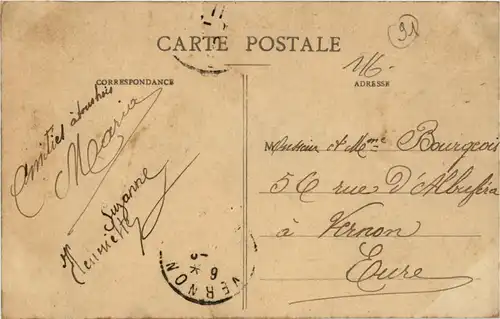 91
CARTE POSTALE
116
CORRESPONDANCE
ADRESSE
Amitiés à tous trois
Maria
Suzanne
Henriette
Monsieur et Mme Bourgeois
56 rue d'Albufera
à Vernon
Eure
VERNON
6